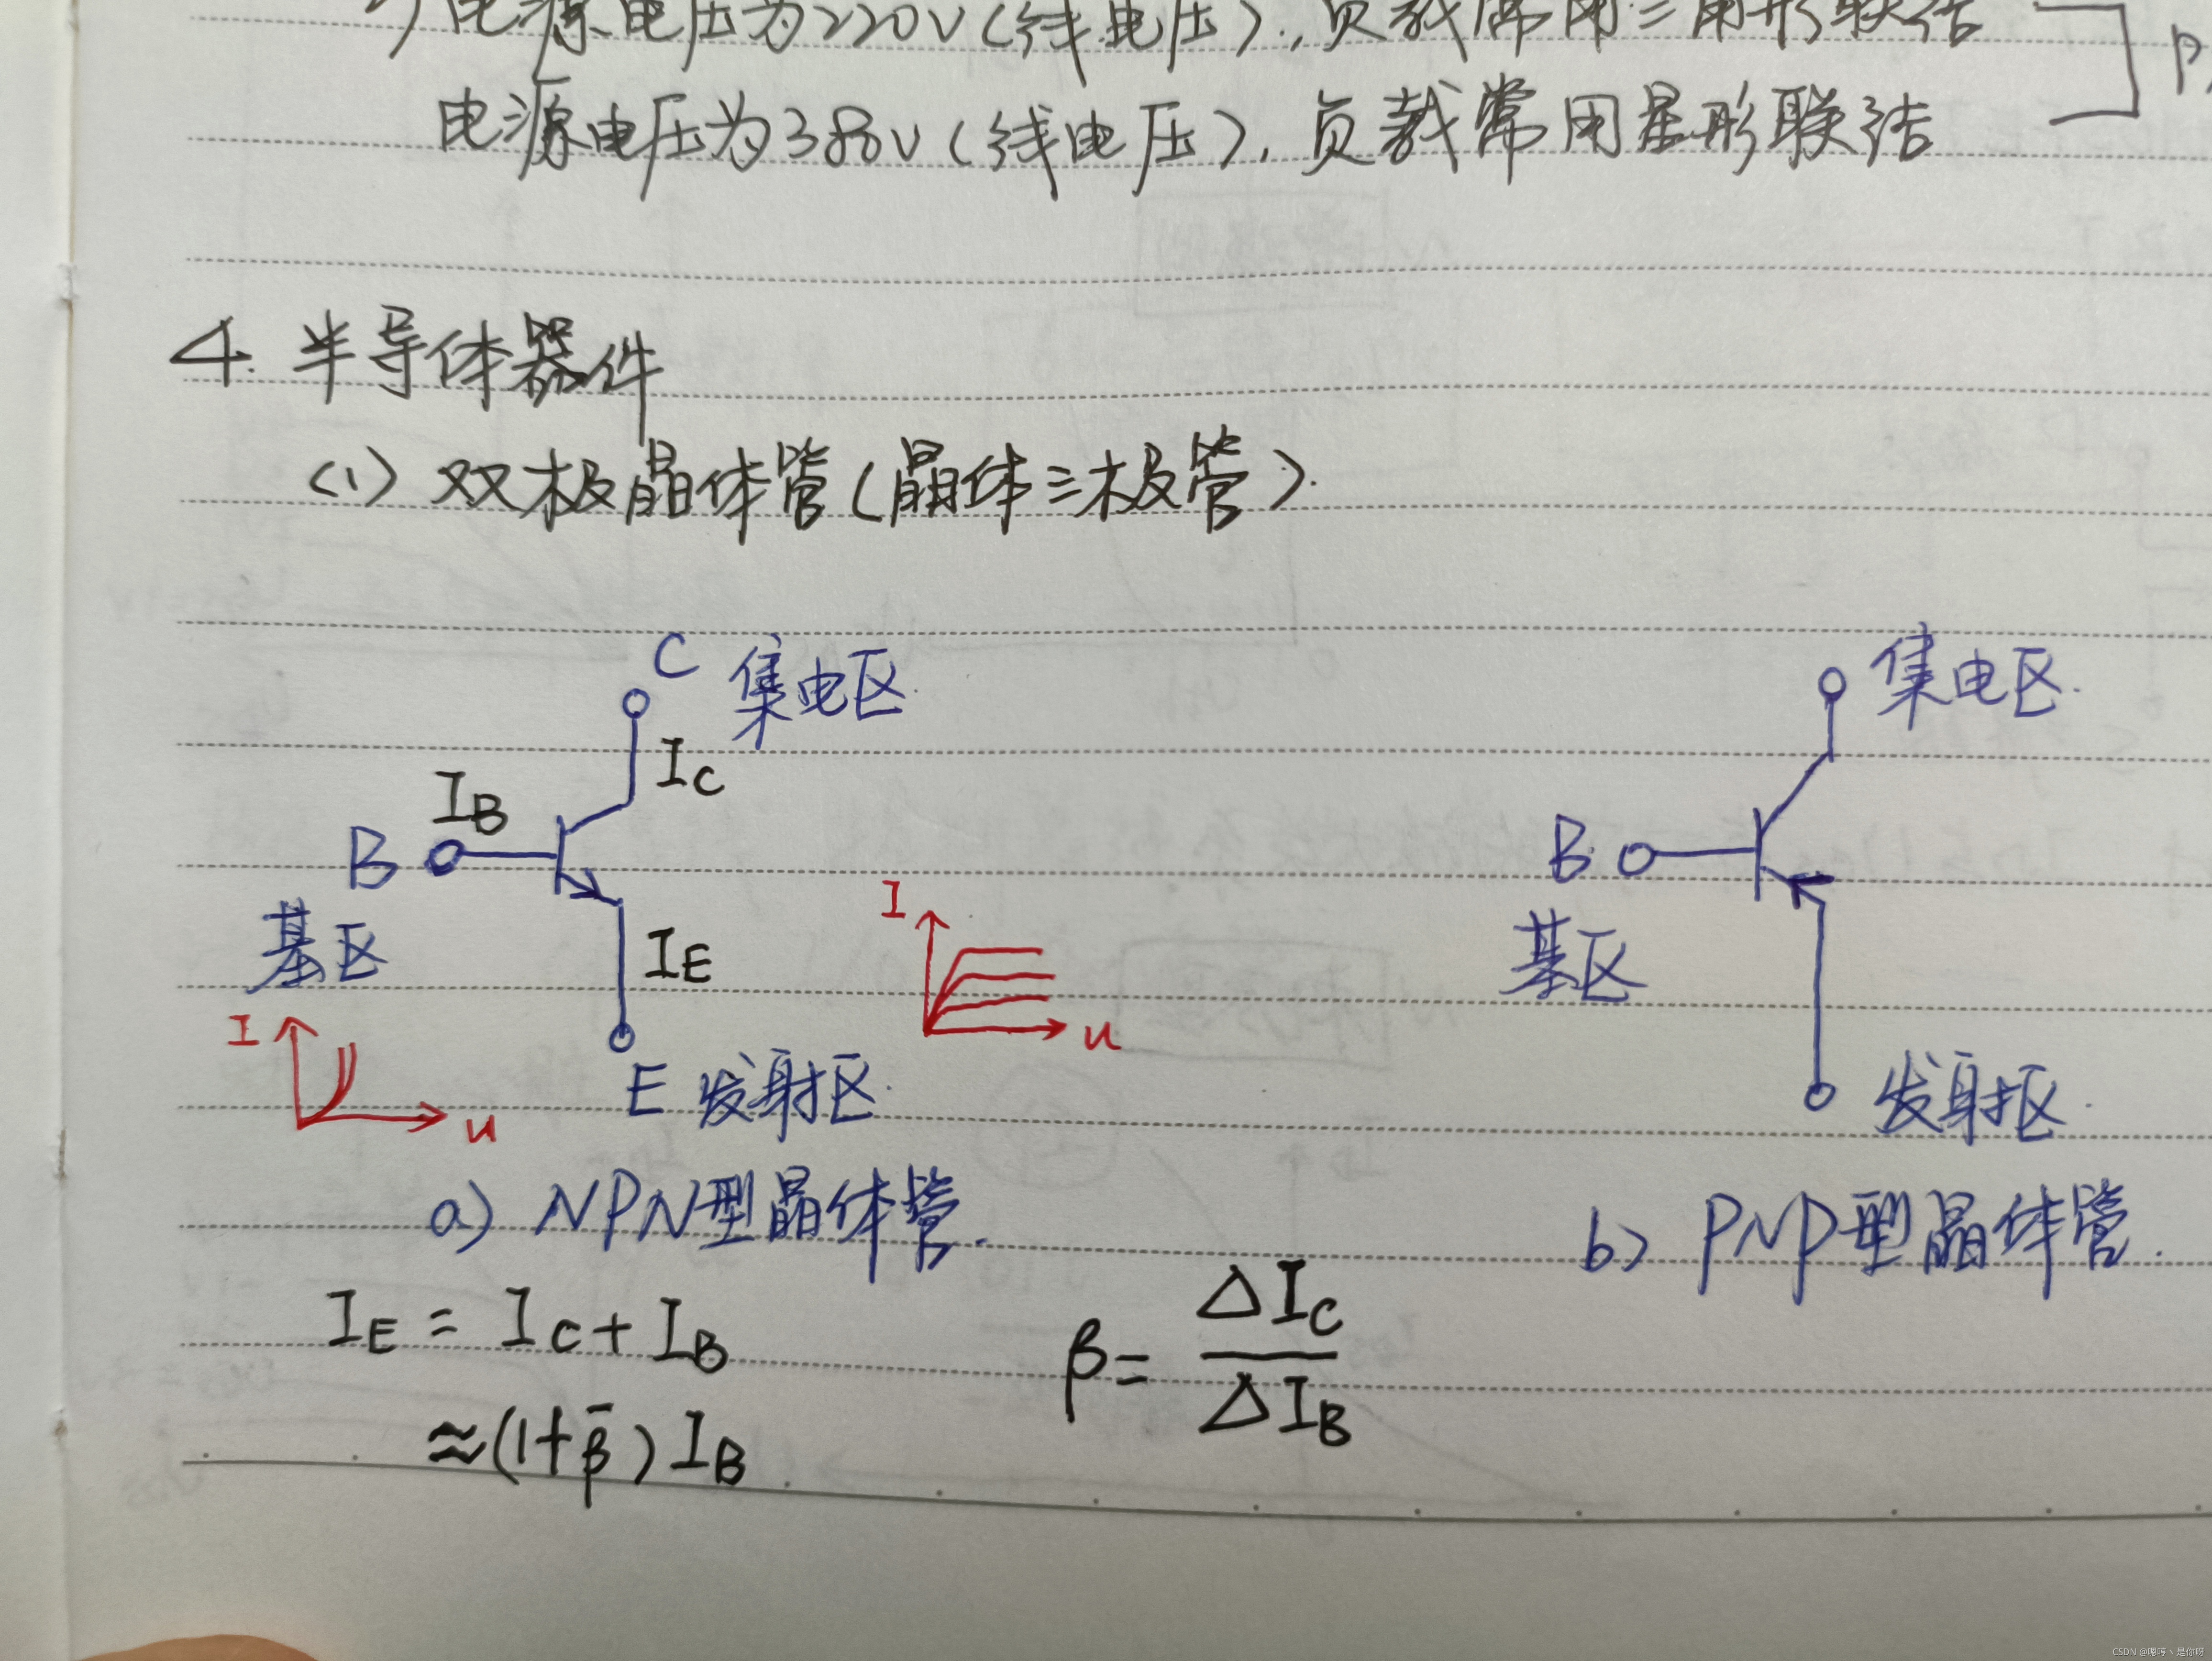 电源电压为220V(线电压),负载常用三角形联结
电源电压为380V(线电压),负载常用星形联结
P
4. 半导体器件
(1) 双极晶体管(晶体三极管).
C 集电区
IC
IB
B
基区
IE
E 发射区
I
u
I
u
集电区.
B
基区
发射区.
a) NPN型晶体管.
b) PNP型晶体管.
IE = IC + IB
≈(1+β̄)IB
β = ΔIC / ΔIB
CSDN @嗯哼丶是你呀